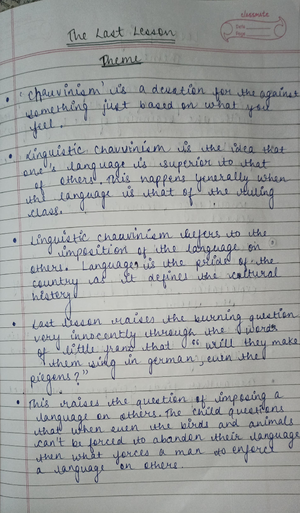 classmate
Date
Page
The Last Lesson
Theme
• 'Chauvinism' is a devotion for the against
something just based on what you
feel.
• Linguistic chauvinism is the idea that
one's language is superior to that
of others. This happens generally when
the language is that of the ruling
class.
• Linguistic chauvinism refers to the
imposition of the language on
others. Language is the pride of the
country as it defines the cultural
history
• Last lesson raises the burning question
very innocently through the words
of little franz that "will they make
them sing in german, even the
piegons?"
• This raises the question of imposing a
language on others. The child questions
that when even the birds and animals
can't be forced to abandon their language
then what forces a man to enforce
a language on others.